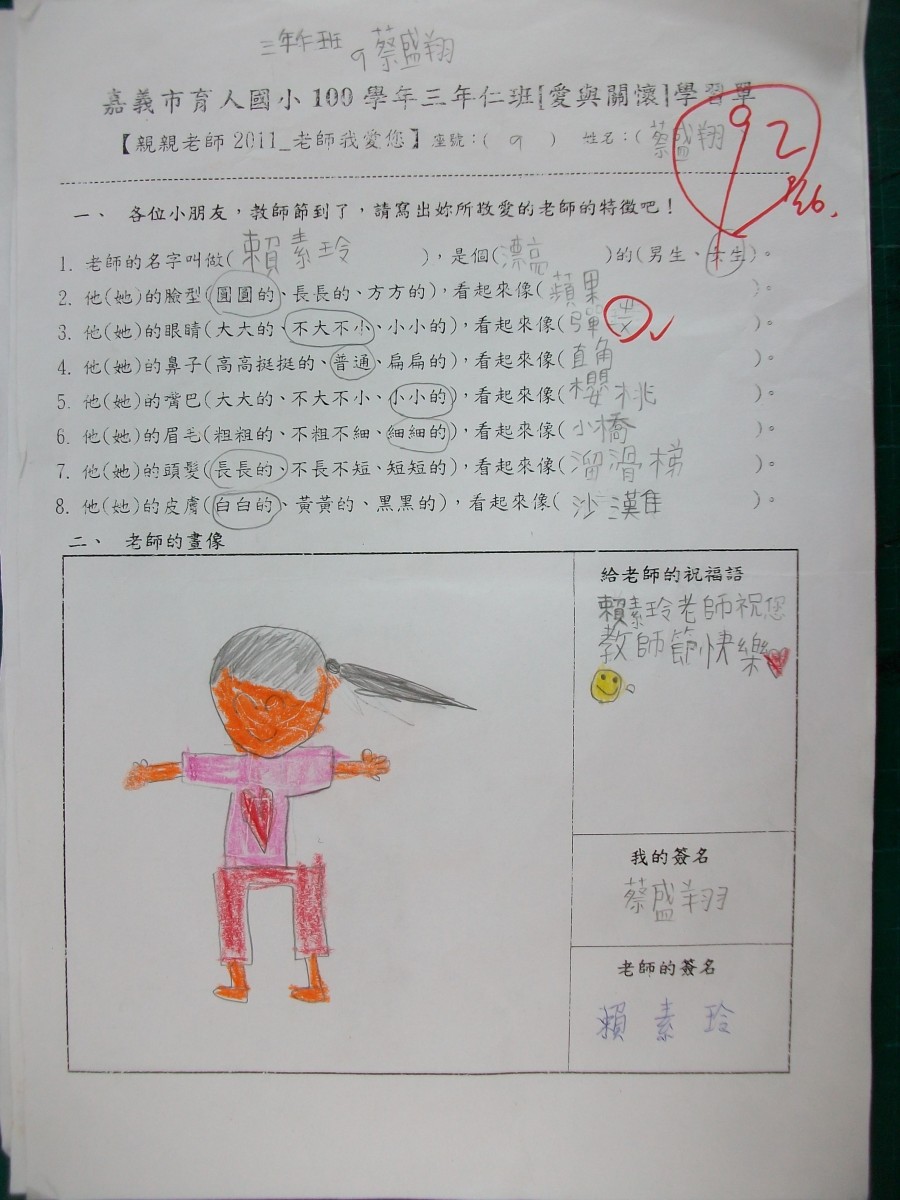 三年仁班 9 蔡盛翔
嘉義市育人國小100學年三年仁班[愛與關懷]學習單
【親親老師2011_老師我愛您】座號：( 9 ) 姓名：( 蔡盛翔
92
9/26.
一、 各位小朋友，教師節到了，請寫出妳所敬愛的老師的特徵吧！
1. 老師的名字叫做( 賴素玲 )，是個( 漂亮 )的(男生、女生)。
2. 他(她)的臉型(圓圓的、長長的、方方的)，看起來像( 蘋果 )。
3. 他(她)的眼睛(大大的、不大不小、小小的)，看起來像( 彈ㄓㄨ )。
4. 他(她)的鼻子(高高挺挺的、普通、扁扁的)，看起來像( 直角 )。
5. 他(她)的嘴巴(大大的、不大不小、小小的)，看起來像( 櫻桃 )。
6. 他(她)的眉毛(粗粗的、不粗不細、細細的)，看起來像( 小橋 )。
7. 他(她)的頭髮(長長的、不長不短、短短的)，看起來像( 溜滑梯 )。
8. 他(她)的皮膚(白白的、黃黃的、黑黑的)，看起來像( 沙漠 )。
二、 老師的畫像
給老師的祝福語
賴素玲老師祝您
教師節快樂
我的簽名
蔡盛翔
老師的簽名
賴素玲